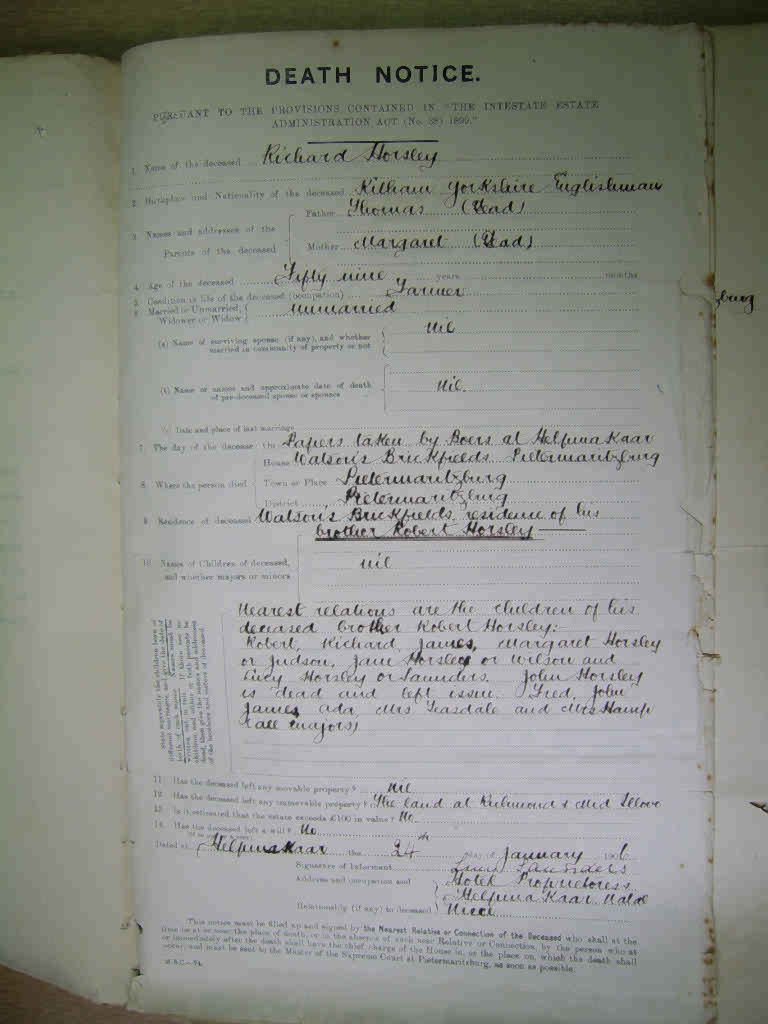 DEATH NOTICE.
PURSUANT TO THE PROVISIONS CONTAINED IN "THE INTESTATE ESTATE
ADMINISTRATION ACT (No. 38) 1899."
1. Name of the deceased Richard Horsley
2. Birthplace and Nationality of the deceased Kilham Yorkshire Englishman
Father Thomas (Dead)
3. Names and addresses of the
Parents of the deceased
Mother Margaret (Dead)
4. Age of the deceased Fifty nine years months
5. Condition in life of the deceased (occupation) Farmer
6. Married or Unmarried, Unmarried
Widower or Widow
(a) Name of surviving spouse (if any), and whether nil
married in community of property or not
(b) Name or names and approximate date of death nil.
of pre-deceased spouse or spouses
(c) Date and place of last marriage
7. The day of the decease On Papers taken by Boers at Helpma Kaar
House Watson's Brickfields Pietermaritzburg
8. Where the person died Town or Place Pietermaritzburg
District Pietermaritzburg
9. Residence of deceased Watson's Brickfields, residence of his
brother Robert Horsley
10. Names of Children of deceased, nil
and whether majors or minors
Nearest relations are the children of his
deceased brother Robert Horsley:
Robert, Richard, James, Margaret Horsley
or Judson, Jane Horsley or Wilson and
Lucy Horsley or Saunders. John Horsley
is dead and left issue. Fred, John
James Ada, Mrs Teasdale and Mrs Hamp
(all majors)
State separately the children born of
different marriages, and give the date of
birth of each minor.
11. Has the deceased left any movable property? nil
12. Has the deceased left any immovable property? The land at Richmond & Mid Illovo
13. Is it estimated that the estate exceeds £100 in value? No.
14. Has the deceased left a will? No
Dated at Helpma Kaar the 24th day of January 1906
Signature of Informant Saunders
Address and occupation and Hotel Proprietoress
Helpma Kaar Natal
Relationship (if any) to deceased Niece
This notice must be filled up and signed by the Nearest Relative or Connection of the Deceased who shall at the
time be at or near the place of death, or in the absence of such near Relative or Connection, by the person who at
or immediately after the death shall have the chief charge of the House in, or the place on, which the death shall
occur, and must be sent to the Master of the Supreme Court at Pietermaritzburg, as soon as possible.
burg